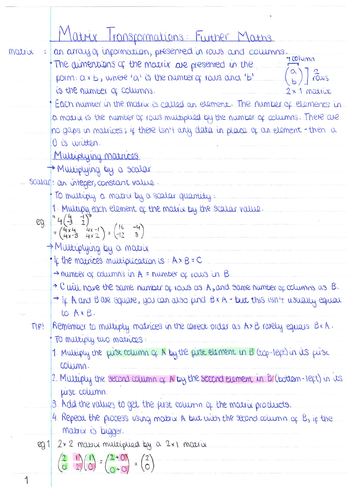 Matrix Transformations: Further Maths
matrix : an array of information, presented in rows and columns.
• The dimensions of the matrix are presented in the
form: a × b, where 'a' is the number of rows and 'b'
is the number of columns.
1 column
(a b) ] 2 rows
2 × 1 matrix
• Each number in the matrix is called an element. The number of elements in
a matrix is the number of rows multiplied by the number of columns. There are
no gaps in matrices; if there isn't any data in place of an element - then a
0 is written.
Multiplying matrices
→ Multiplying by a scalar
scalar: an integer, constant value.
• To multiply a matrix by a scalar quantity:
1. Multiply each element of the matrix by the scalar value.
eg. 4(4 -1
-3 2)
(4×4 4×-1
4×-3 4×2) = (16 -4
-12 8)
→ Multiplying by a matrix
• If the matrices multiplication is : A × B = C
→ number of columns in A = number of rows in B
→ C will have the same number of rows as A, and same number of columns as B.
→ If A and B are square, you can also find B × A - but this isn't usually equal
to A × B.
TIP! Remember to multiply matrices in the correct order as A×B rarely equals B×A.
• To multiply two matrices:
1. Multiply the first column of A by the first element in B (top-left) in its first
column.
2. Multiply the second column of A by the second element in B (bottom-left) in its
first column.
3. Add the values to get the first column of the matrix products.
4. Repeat the process using matrix A but with the second column of B, if the
matrix is bigger.
eg 1. 2×2 matrix multiplied by a 2×1 matrix
1